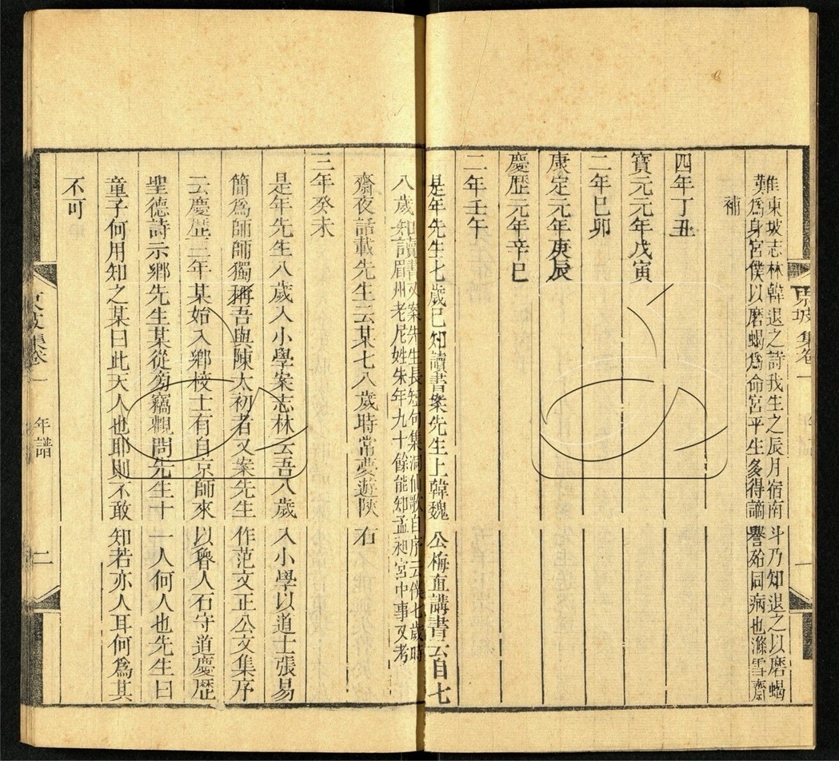 惟東坡志林韓退之詩我生之辰月宿南斗乃知退之以磨蝎
難為身宮僕以磨蝎為命宮平生多得謗譽殆同病也滌雪齋
補
四年丁丑
寶元元年戊寅
二年已卯
康定元年庚辰
慶歷元年辛巳
二年壬午
是年先生七歲已知讀書案先生上韓魏公梅直講書云自七
八歲知讀書
又案先生長短句集洞仙歌自序云僕七歲時
眉州老尼姓朱年九十餘能知孟昶宮中事又考
齋夜話載先生云某七八歲時常夢遊陝右
三年癸未
是年先生八歲入小學案志林云吾八歲入小學以道士張易
簡為師師獨稱吾與陳太初者又案先生作范文正公文集序
云慶歷三年某始入鄉校士有自京師來以魯人石守道慶歷
聖德詩示鄉先生某從旁竊覩問先生十一人何人也先生曰
童子何用知之某曰此天人也耶則不敢知若亦人耳何為其
不可
東坡集卷一
年譜
二